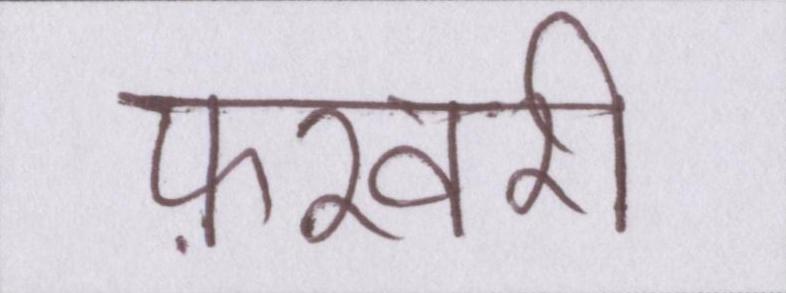 फ़रवरी